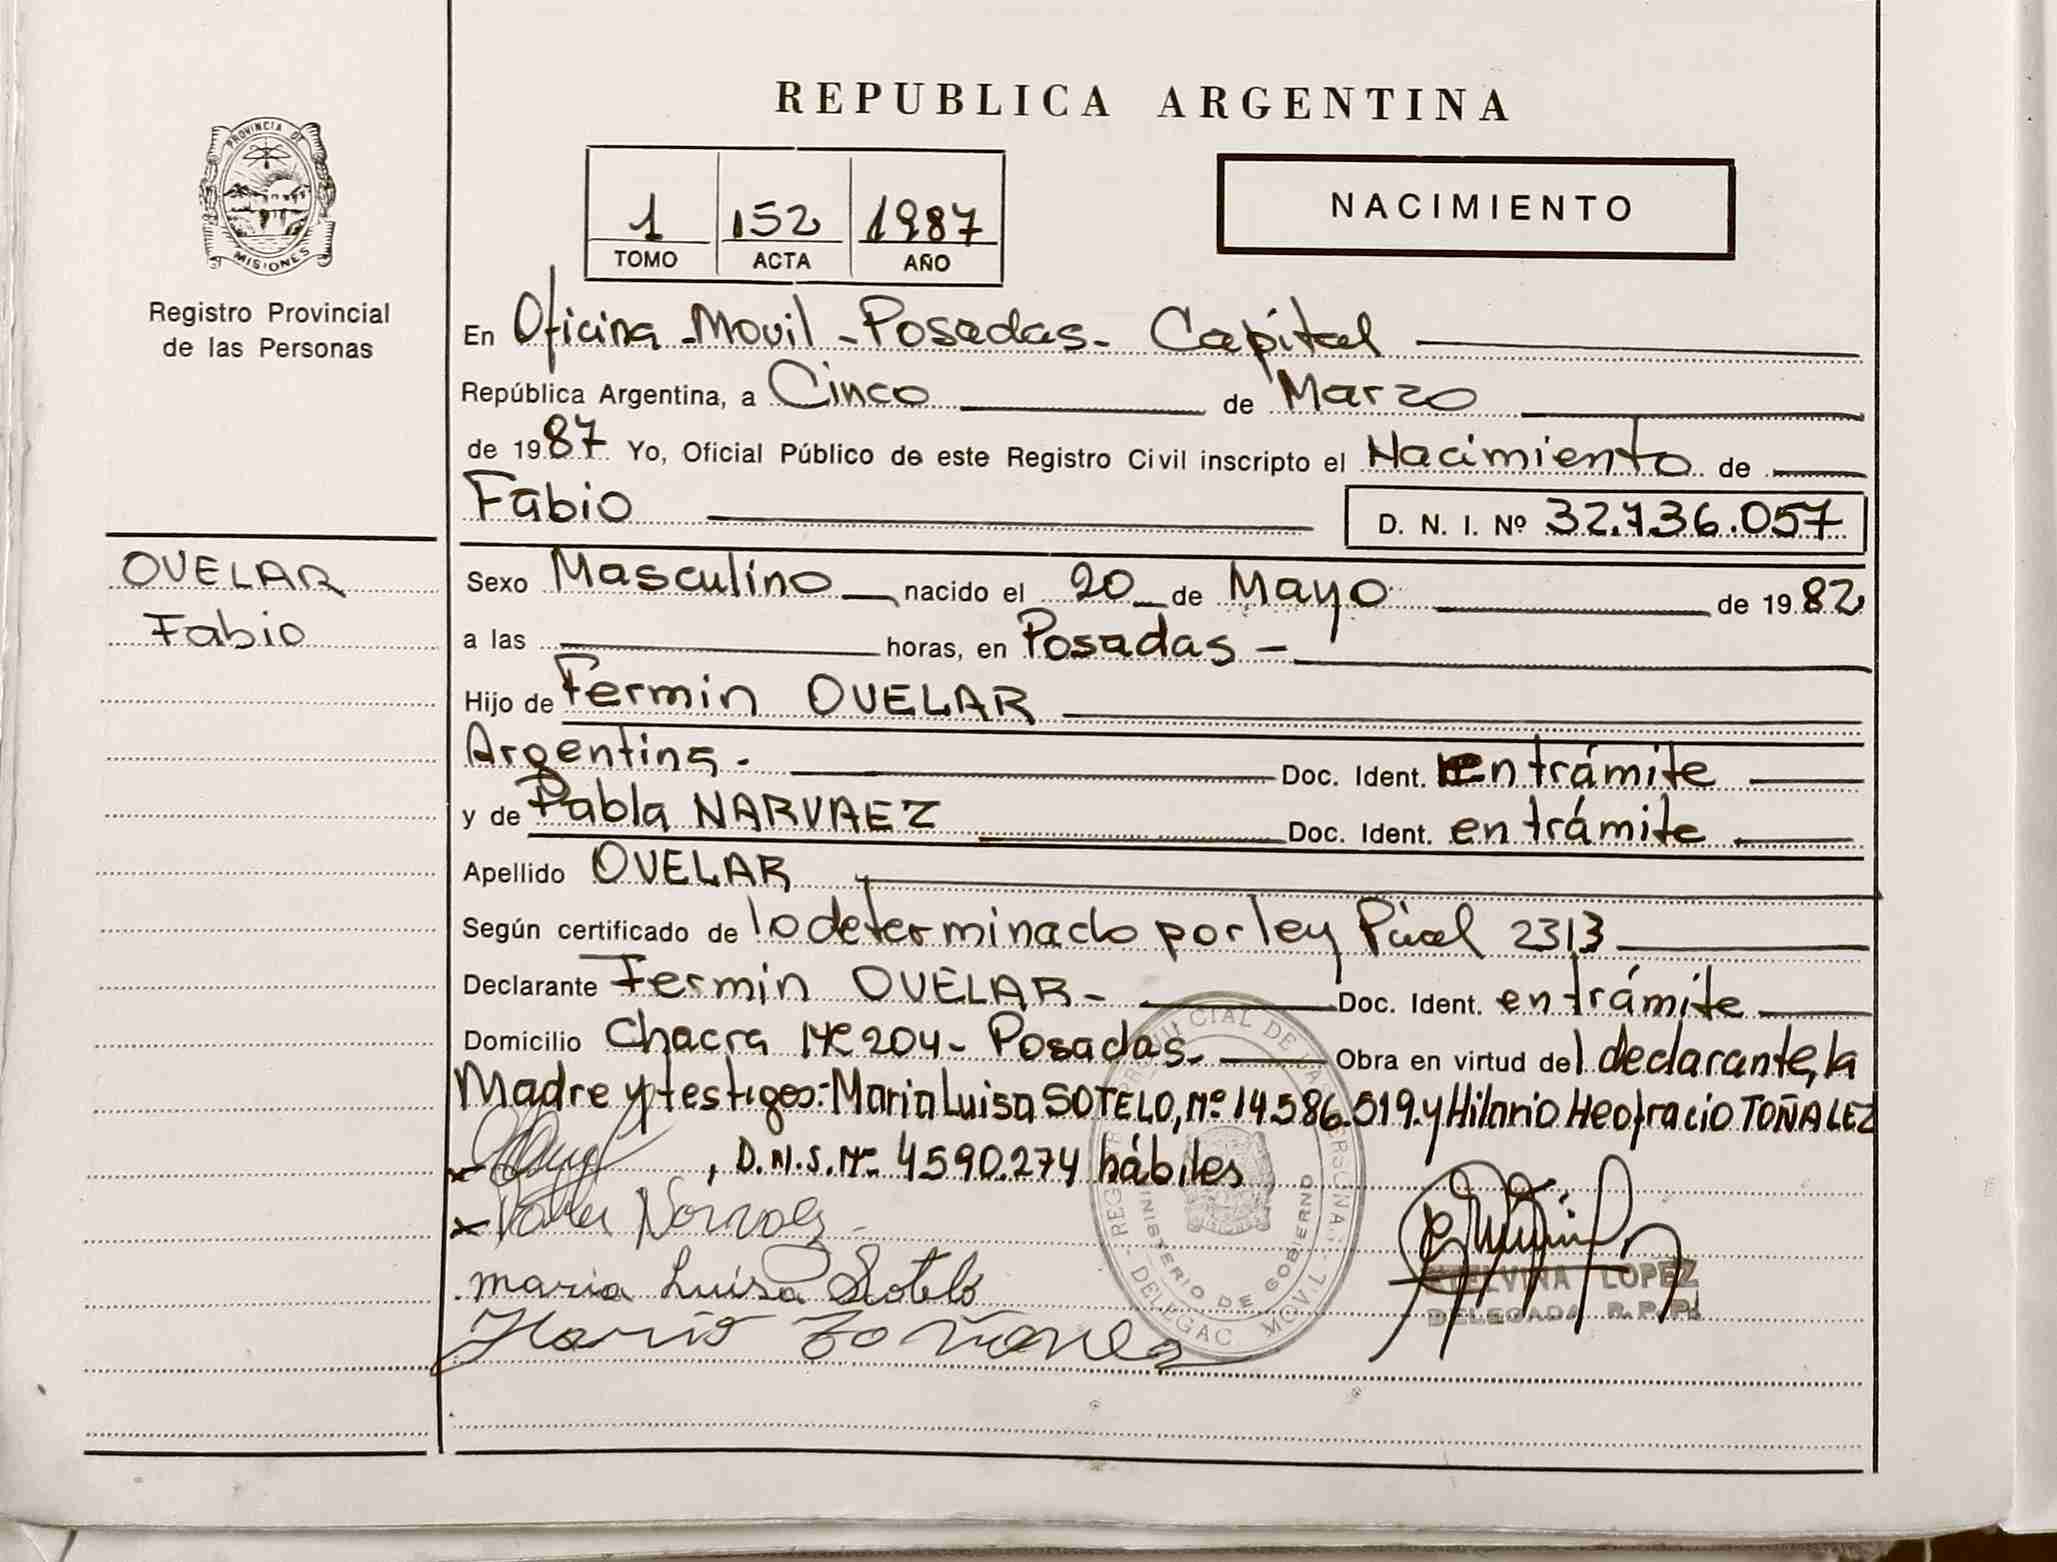 REPUBLICA ARGENTINA
PROVINCIA DE MISIONES
Registro Provincial
de las Personas
1 152 1987
TOMO ACTA AÑO
NACIMIENTO
En Oficina Movil - Posadas - Capital
República Argentina, a Cinco de Marzo
de 1987 Yo, Oficial Público de este Registro Civil inscripto el Nacimiento de
Fabio D. N. I. Nº 32.736.057
OVELAR
Fabio
Sexo Masculino nacido el 20 de Mayo de 1982
a las horas, en Posadas -
Hijo de Fermin OVELAR
Argentina. Doc. Ident. en trámite
y de Pabla NARVAEZ Doc. Ident. en trámite
Apellido OVELAR
Según certificado de lo determinado por ley 2313
Declarante Fermin OVELAR - Doc. Ident. en trámite
Domicilio Chacra Nº 204 - Posadas. Obra en virtud del declarante, la
Madre y testigos: Maria Luisa SOTELO, Nº 14.586.519. y Hilario TOÑALEZ
, D.N.I. Nº 4590.274 hábiles
maria Luisa Sotelo
MINISTERIO DE GOBIERNO
LOPEZ
DELEGADA R.P.P.